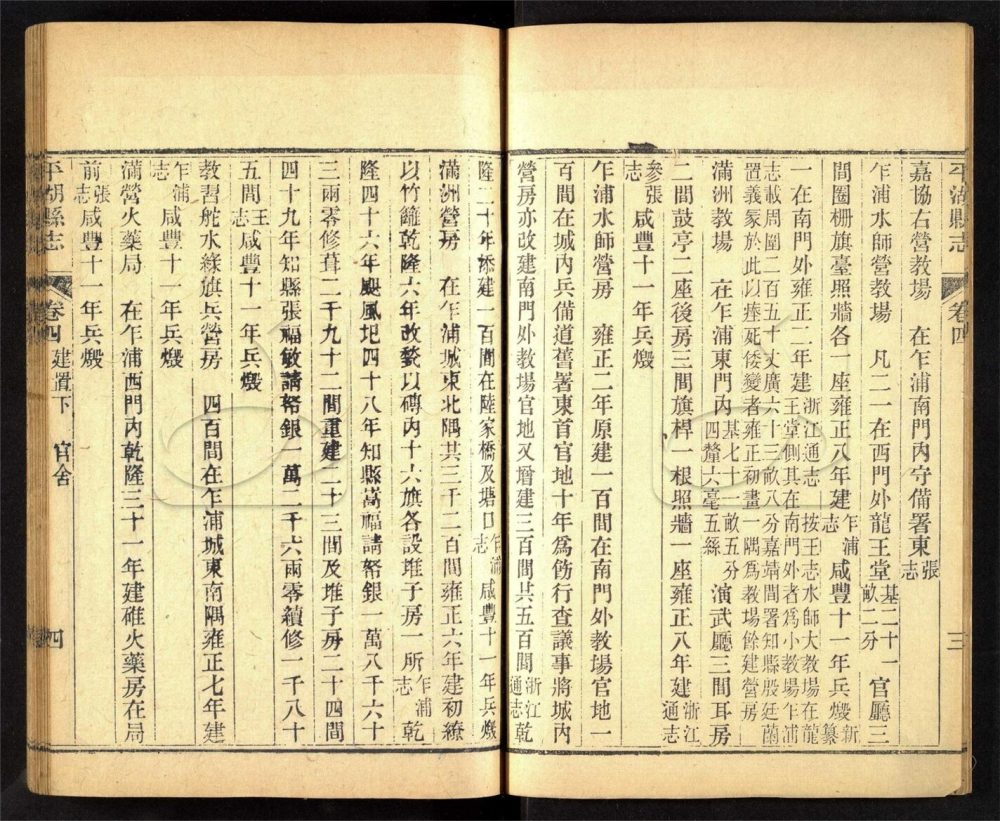 平湖縣志 卷四 三
嘉協右營教場 在乍浦南門內守備署東張志
乍浦水師營教場 凡二一在西門外龍王堂基二十一畝二分 官廳三
間圈棚旗臺照牆各一座雍正八年建乍浦志 咸豐十一年兵燬新纂
一在南門外雍正二年建浙江通志 按王志水師大教場在龍王堂側其在南門外者為小教場乍浦
志載周圍二百五十丈廣六十三畝八分嘉靖間署知縣殷廷蘭置義冢於此以瘞死倭變者雍正初畫一隅為教場餘建營房
滿洲教場 在乍浦東門內基七十一畝五分四釐六毫五絲 演武廳三間耳房
二間鼓亭二座後房三間旗桿一根照牆一座雍正八年建浙江通志
參張志 咸豐十一年兵燬
乍浦水師營房 雍正二年原建一百間在南門外教場官地一
百間在城內兵備道舊署東首官地十年為飭行查議事將城內
營房亦改建南門外教場官地又增建三百間共五百間浙江通志乾
隆二十年添建一百間在陸家橋及塘口乍浦志 咸豐十一年兵燬
滿洲營房 在乍浦城東北隅共三千二百間雍正六年建初繚
以竹籬乾隆六年改甃以磚內十六旗各設堆子房一所乍浦志乾
隆四十六年颶風圮四十八年知縣嵩福請帑銀一萬八千六十
三兩零修葺二千九十二間重建二十三間及堆子房二十四間
四十九年知縣張福敏請帑銀一萬二千六兩零續修一千八十
五間王志咸豐十一年兵燬
教習舵水綠旗兵營房 四百間在乍浦城東南隅雍正七年建
乍浦志 咸豐十一年兵燬
滿營火藥局 在乍浦西門內乾隆三十一年建碓火藥房在局
前張志咸豐十一年兵燬
平湖縣志 卷四 建置下 官舍 四